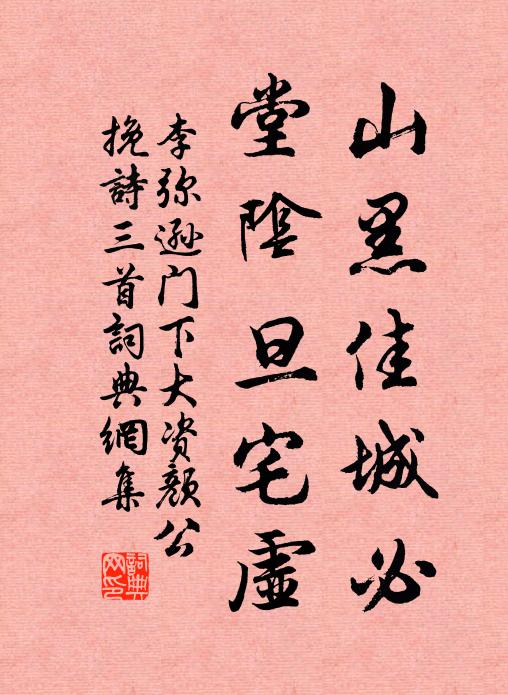 山黑佳城必
堂陰旦宅虛
李弥遜门下大资颜公
挽詩三首詞典網集
詞典网印